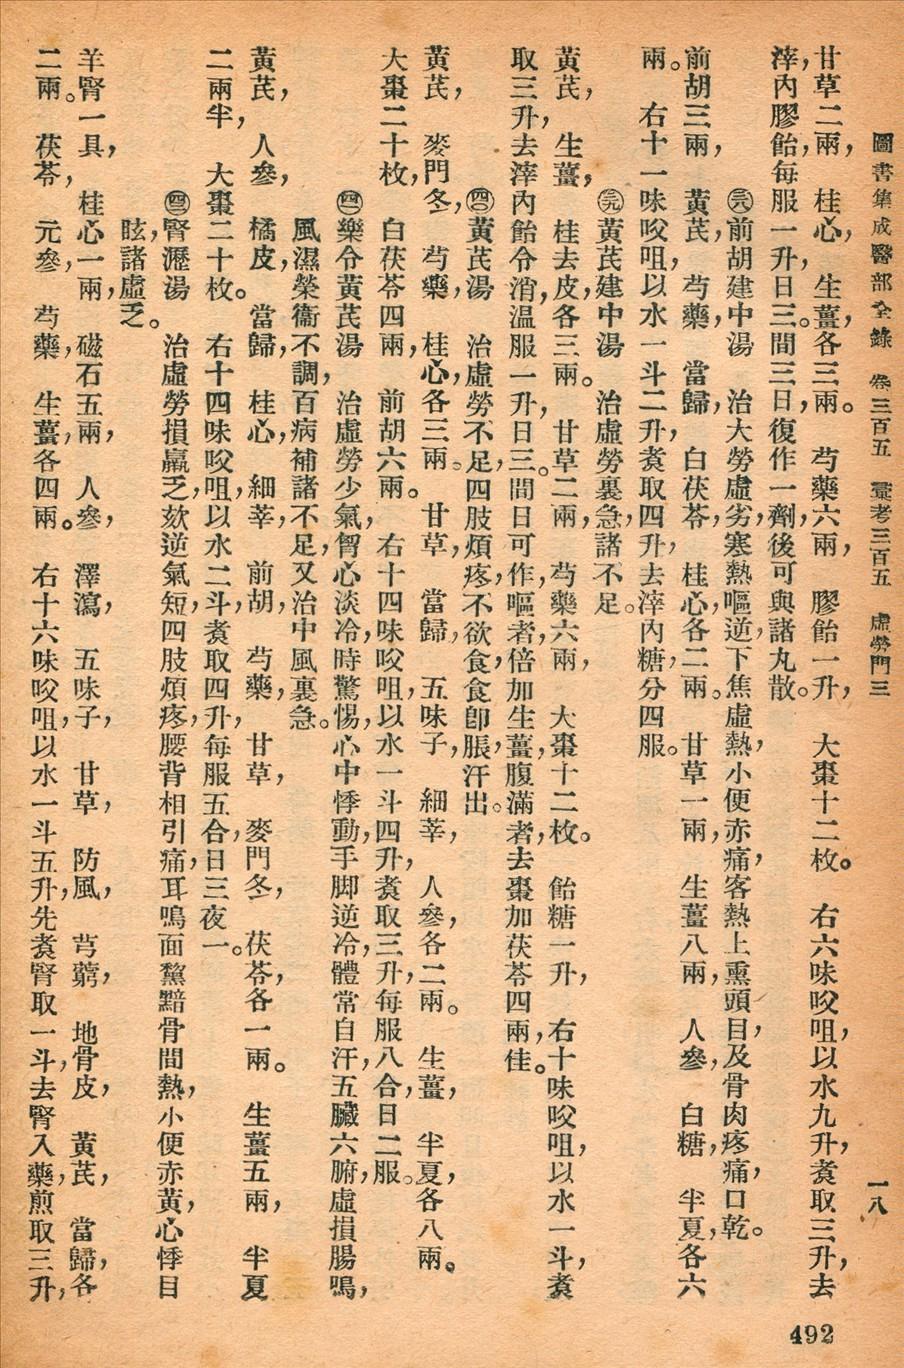 圖書集成醫部全錄　卷三百五　彙考三百五　虛勞門三　一八
甘草二兩，　桂心，　生薑，各三兩。　芍藥六兩，　膠飴一升，　大棗十二枚。　右六味㕮咀，以水九升，煑取三升，去
滓，內膠飴，每服一升，日三。間三日，復作一劑，後可與諸丸散。
㊳前胡建中湯　治大勞虛劣，寒熱嘔逆，下焦虛熱，小便赤痛，客熱上熏頭目，及骨肉疼痛，口乾。
前胡三兩，　黃芪，　芍藥，　當歸，　白茯苓，　桂心，各二兩。　甘草一兩，　生薑八兩，　人參，　白糖，　半夏，各六
兩。　右十一味㕮咀，以水一斗二升，煑取四升，去滓內糖，分四服。
㊴黃芪建中湯　治虛勞裏急，諸不足。
黃芪，　生薑，　桂去皮，各三兩。　甘草二兩，　芍藥六兩，　大棗十二枚。　飴糖一升，　右十味㕮咀，以水一斗，煑
取三升，去滓內飴令消，溫服一升，日三。間日可作，嘔者，倍加生薑，腹滿者，去棗加茯苓四兩，佳。
㊵黃芪湯　治虛勞不足，四肢煩疼，不欲食，食卽脹，汗出。
黃芪，　麥門冬，　芍藥，　桂心，各三兩。　甘草，　當歸，　五味子，　細莘，　人參，各二兩。　生薑，　半夏，各八兩。
大棗二十枚，　白茯苓四兩，　前胡六兩。　右十四味㕮咀，以水一斗四升，煑取三升，每服八合，日二服。
㊶樂令黃芪湯　治虛勞少氣，胷心淡冷，時驚惕，心中悸動，手脚逆冷，體常自汗，五臟六腑虛損，腸鳴，
風濕榮衞不調，百病補諸不足，又治中風裏急。
黃芪，　人參，　橘皮，　當歸，　桂心，　細莘，　前胡，　芍藥，　甘草，　麥門冬，　茯苓，各一兩。　生薑五兩，　半夏
二兩半，　大棗二十枚。　右十四味㕮咀，以水二斗，煑取四升，每服五合，日三夜一。
㊷腎瀝湯　治虛勞損羸乏，欬逆氣短，四肢煩疼，腰背相引痛，耳鳴面黧黯骨間熱，小便赤黃，心悸目
眩，諸虛乏。
羊腎一具，　桂心一兩，　磁石五兩，　人參，　澤瀉，　五味子，　甘草，　防風，　芎藭，　地骨皮，　黃芪，　當歸，各
二兩。　茯苓，　元參，　芍藥，　生薑，各四兩。　右十六味㕮咀，以水一斗五升，先煑腎取一斗，去腎入藥，煎取三升，
492